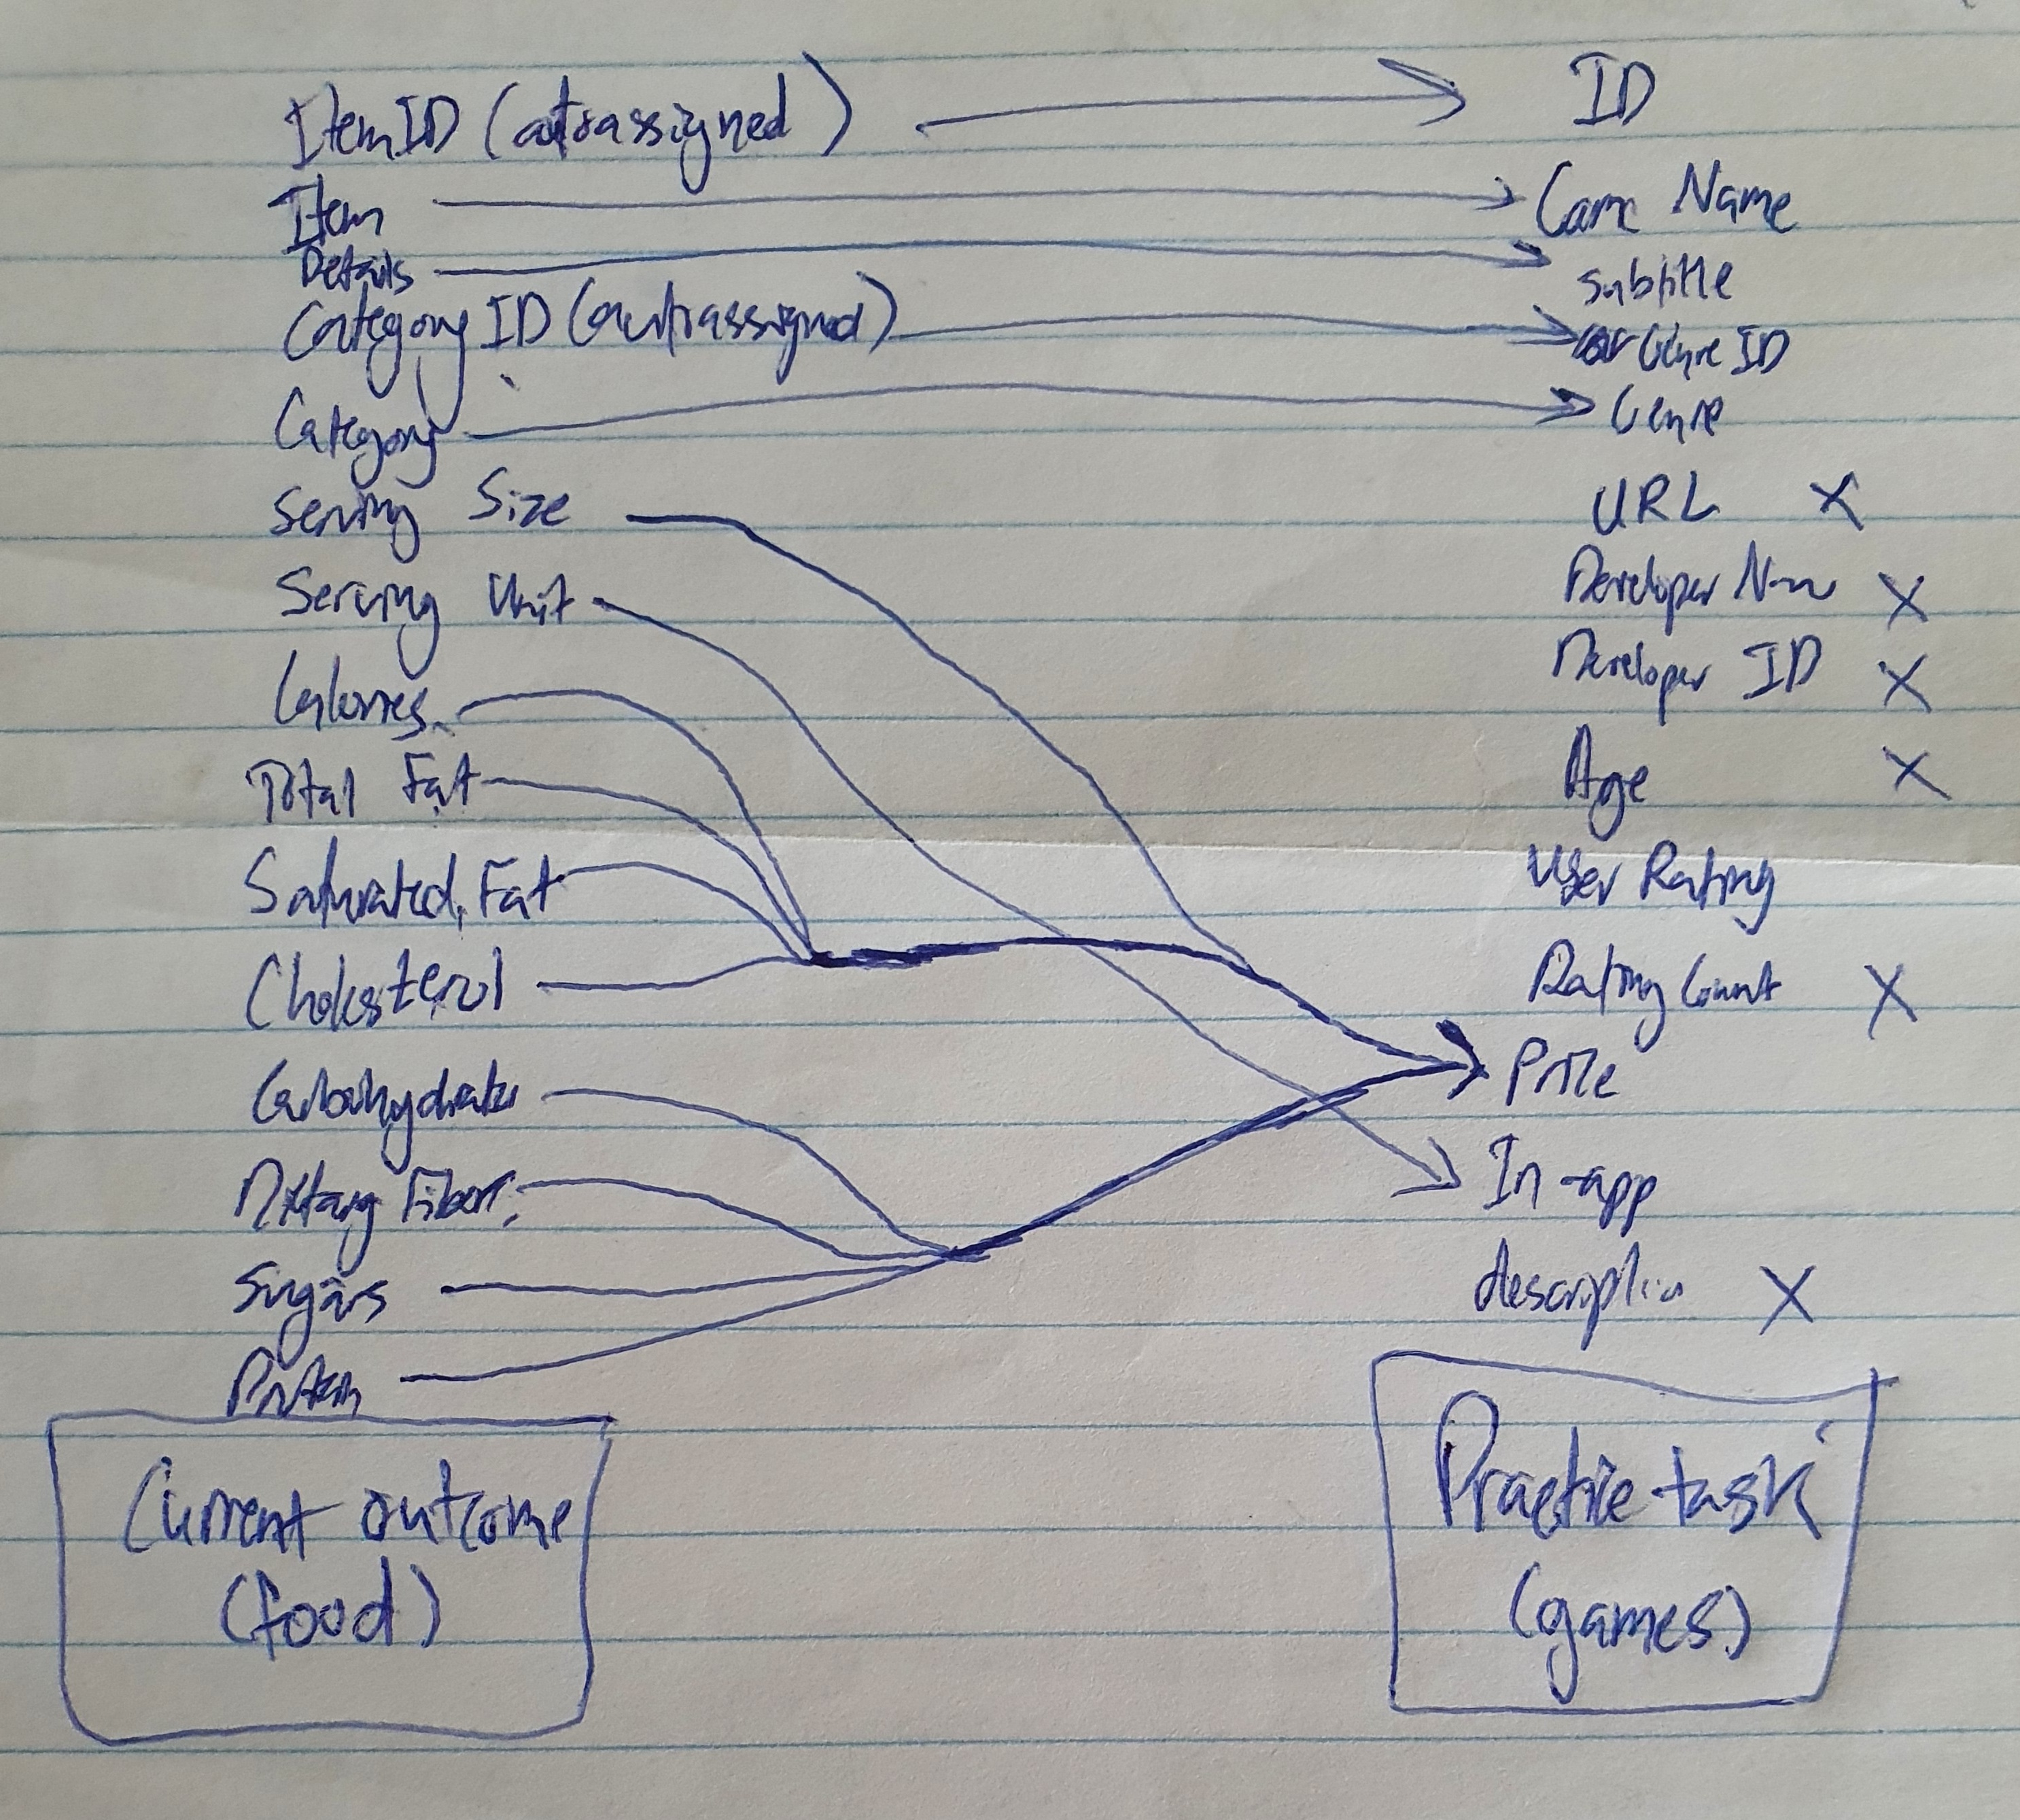 ItemID (autoassigned)
Item
Details
Category ID (autoassigned)
Category
Serving Size
Serving Unit
Calories
Total Fat
Saturated Fat
Cholesterol
Carbohydrates
Dietary Fibers
Sugars
Protein
Current outcome
(food)
ID
Game Name
Subtitle
Genre ID
Genre
URL X
Developer Name X
Developer ID X
Age X
User Rating
Rating Count X
Price
In-app
description X
Practice task
(games)